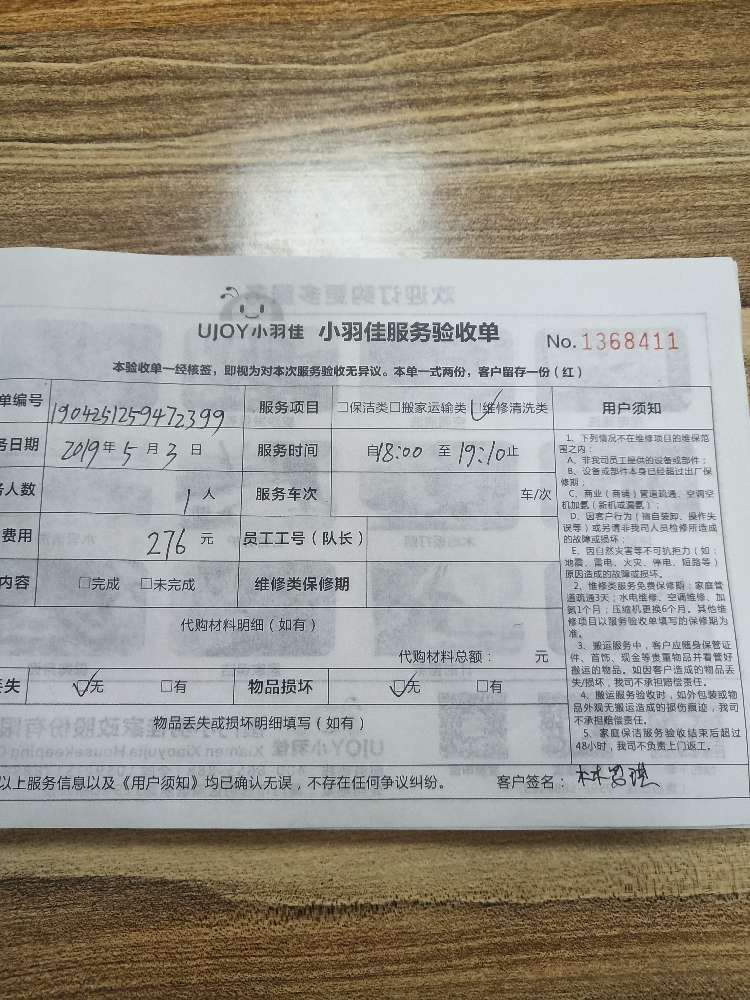 UJOY小羽佳 小羽佳服务验收单 No. 1368411
本验收单一经核签，即视为对本次服务验收无异议。本单一式两份，客户留存一份（红）
单编号 1904251259472399 服务项目 □保洁类□搬家运输类☑维修清洗类 用户须知
务日期 2019年5月3日 服务时间 自18:00 至 19:10止
务人数 1人 服务车次 车/次
费用 276元 员工工号（队长）
内容 □完成 □未完成 维修类保修期
代购材料明细（如有）
代购材料总额： 元
丢失 ☑无 □有 物品损坏 ☑无 □有
物品丢失或损坏明细填写（如有）
以上服务信息以及《用户须知》均已确认无误，不存在任何争议纠纷。 客户签名：
1、下列情况不在维修项目的维保范
围之内：
A、非我司员工提供的设备或部件；
B、设备或部件本身已经超过出厂保
修期；
C、商业（商铺）管道疏通、空调空
机加氨（新机或漏氨）；
D、因客户行为（擅自装卸、操作失
误等）或另请非我司人员检修所造成
的故障或损坏；
E、因自然灾害等不可抗拒力（如：
地震、雷电、火灾、停电、短路等）
原因造成的故障或损坏。
2、维修类服务免费保修期：家庭管
道疏通3天；水电维修、空调维修、加
氨1个月；压缩机更换6个月。其他维
修项目以服务验收单填写的保修期为
准。
3、搬运服务中，客户应随身保管证
件、首饰、现金等贵重物品并看管好
搬运的物品。如因客户造成的物品丢
失/损坏，我司不承担赔偿责任。
4、搬运服务验收时，如外包装或物
品外观无搬运造成的损伤痕迹，我司
不承担赔偿责任。
5、家庭保洁服务验收结束后超过
48小时，我司不负责上门返工。